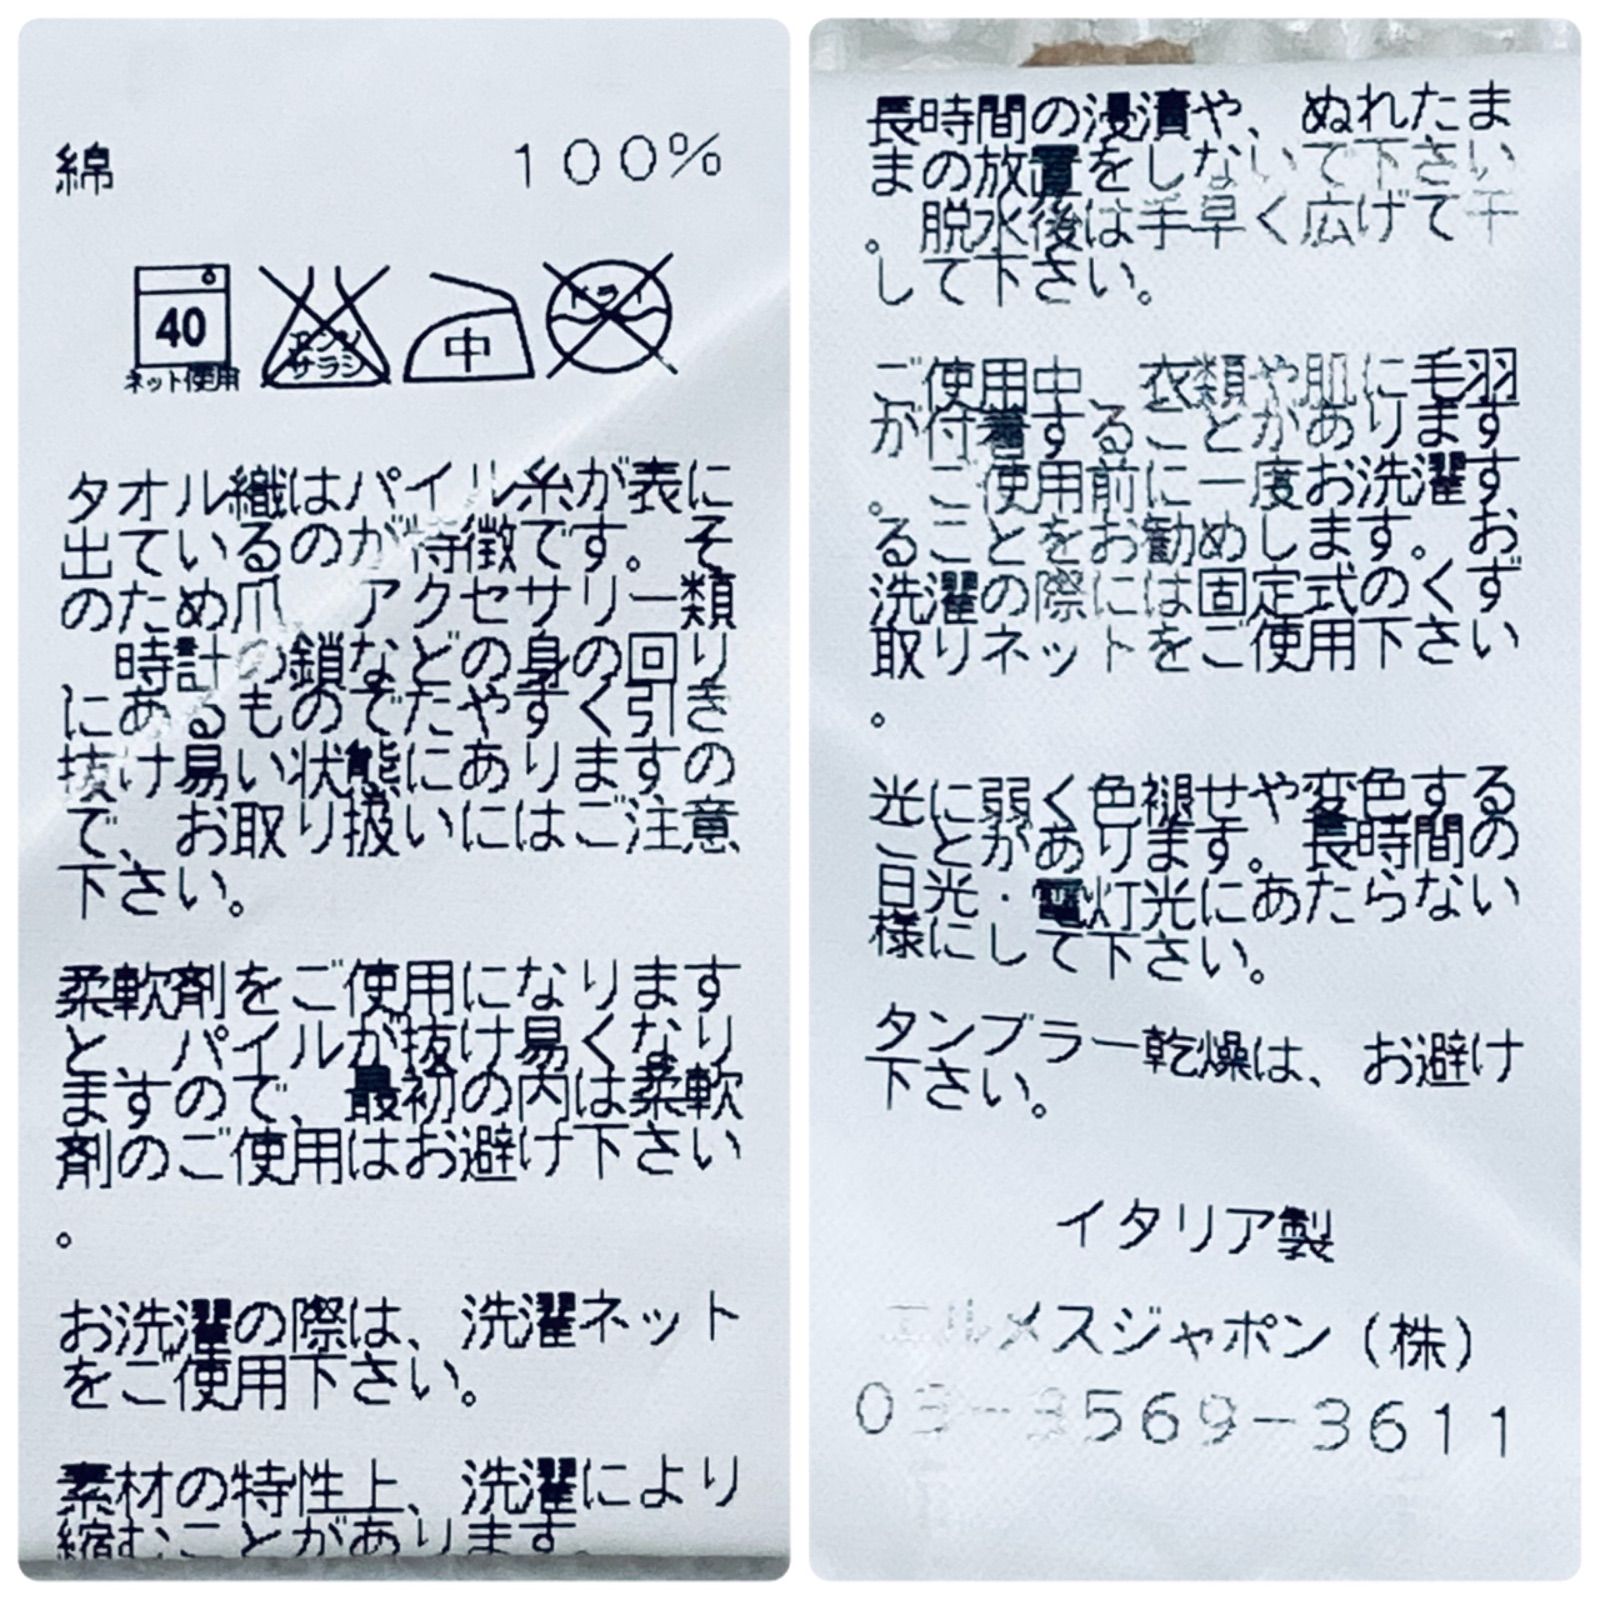 綿 100%
40
ネット使用
エンソ
サラシ
中
ドライ
タオル織はパイル糸が表に
出ているのが特徴です。そ
のため爪、アクセサリー類
、時計の鎖などの身の回り
にあるものでたやすく引き
抜け易い状態にありますの
で、お取り扱いにはご注意
下さい。
柔軟剤をご使用になります
と、パイルが抜け易くなり
ますので、最初の内は柔軟
剤のご使用はお避け下さい
。
お洗濯の際は、洗濯ネット
をご使用下さい。
素材の特性上、洗濯により
縮むことがあります。
長時間の浸漬や、ぬれたま
まの放置をしないで下さい
。脱水後は手早く広げて干
して下さい。
ご使用中、衣類や肌に毛羽
が付着することがあります
。ご使用前に一度お洗濯す
ることをお勧めします。お
洗濯の際には固定式のくず
取りネットをご使用下さい
。
光に弱く色褪せや変色する
ことがあります。長時間の
日光・電灯光にあたらない
様にして下さい。
タンブラー乾燥は、お避け
下さい。
イタリア製
エルメスジャポン(株)
03-3569-3611